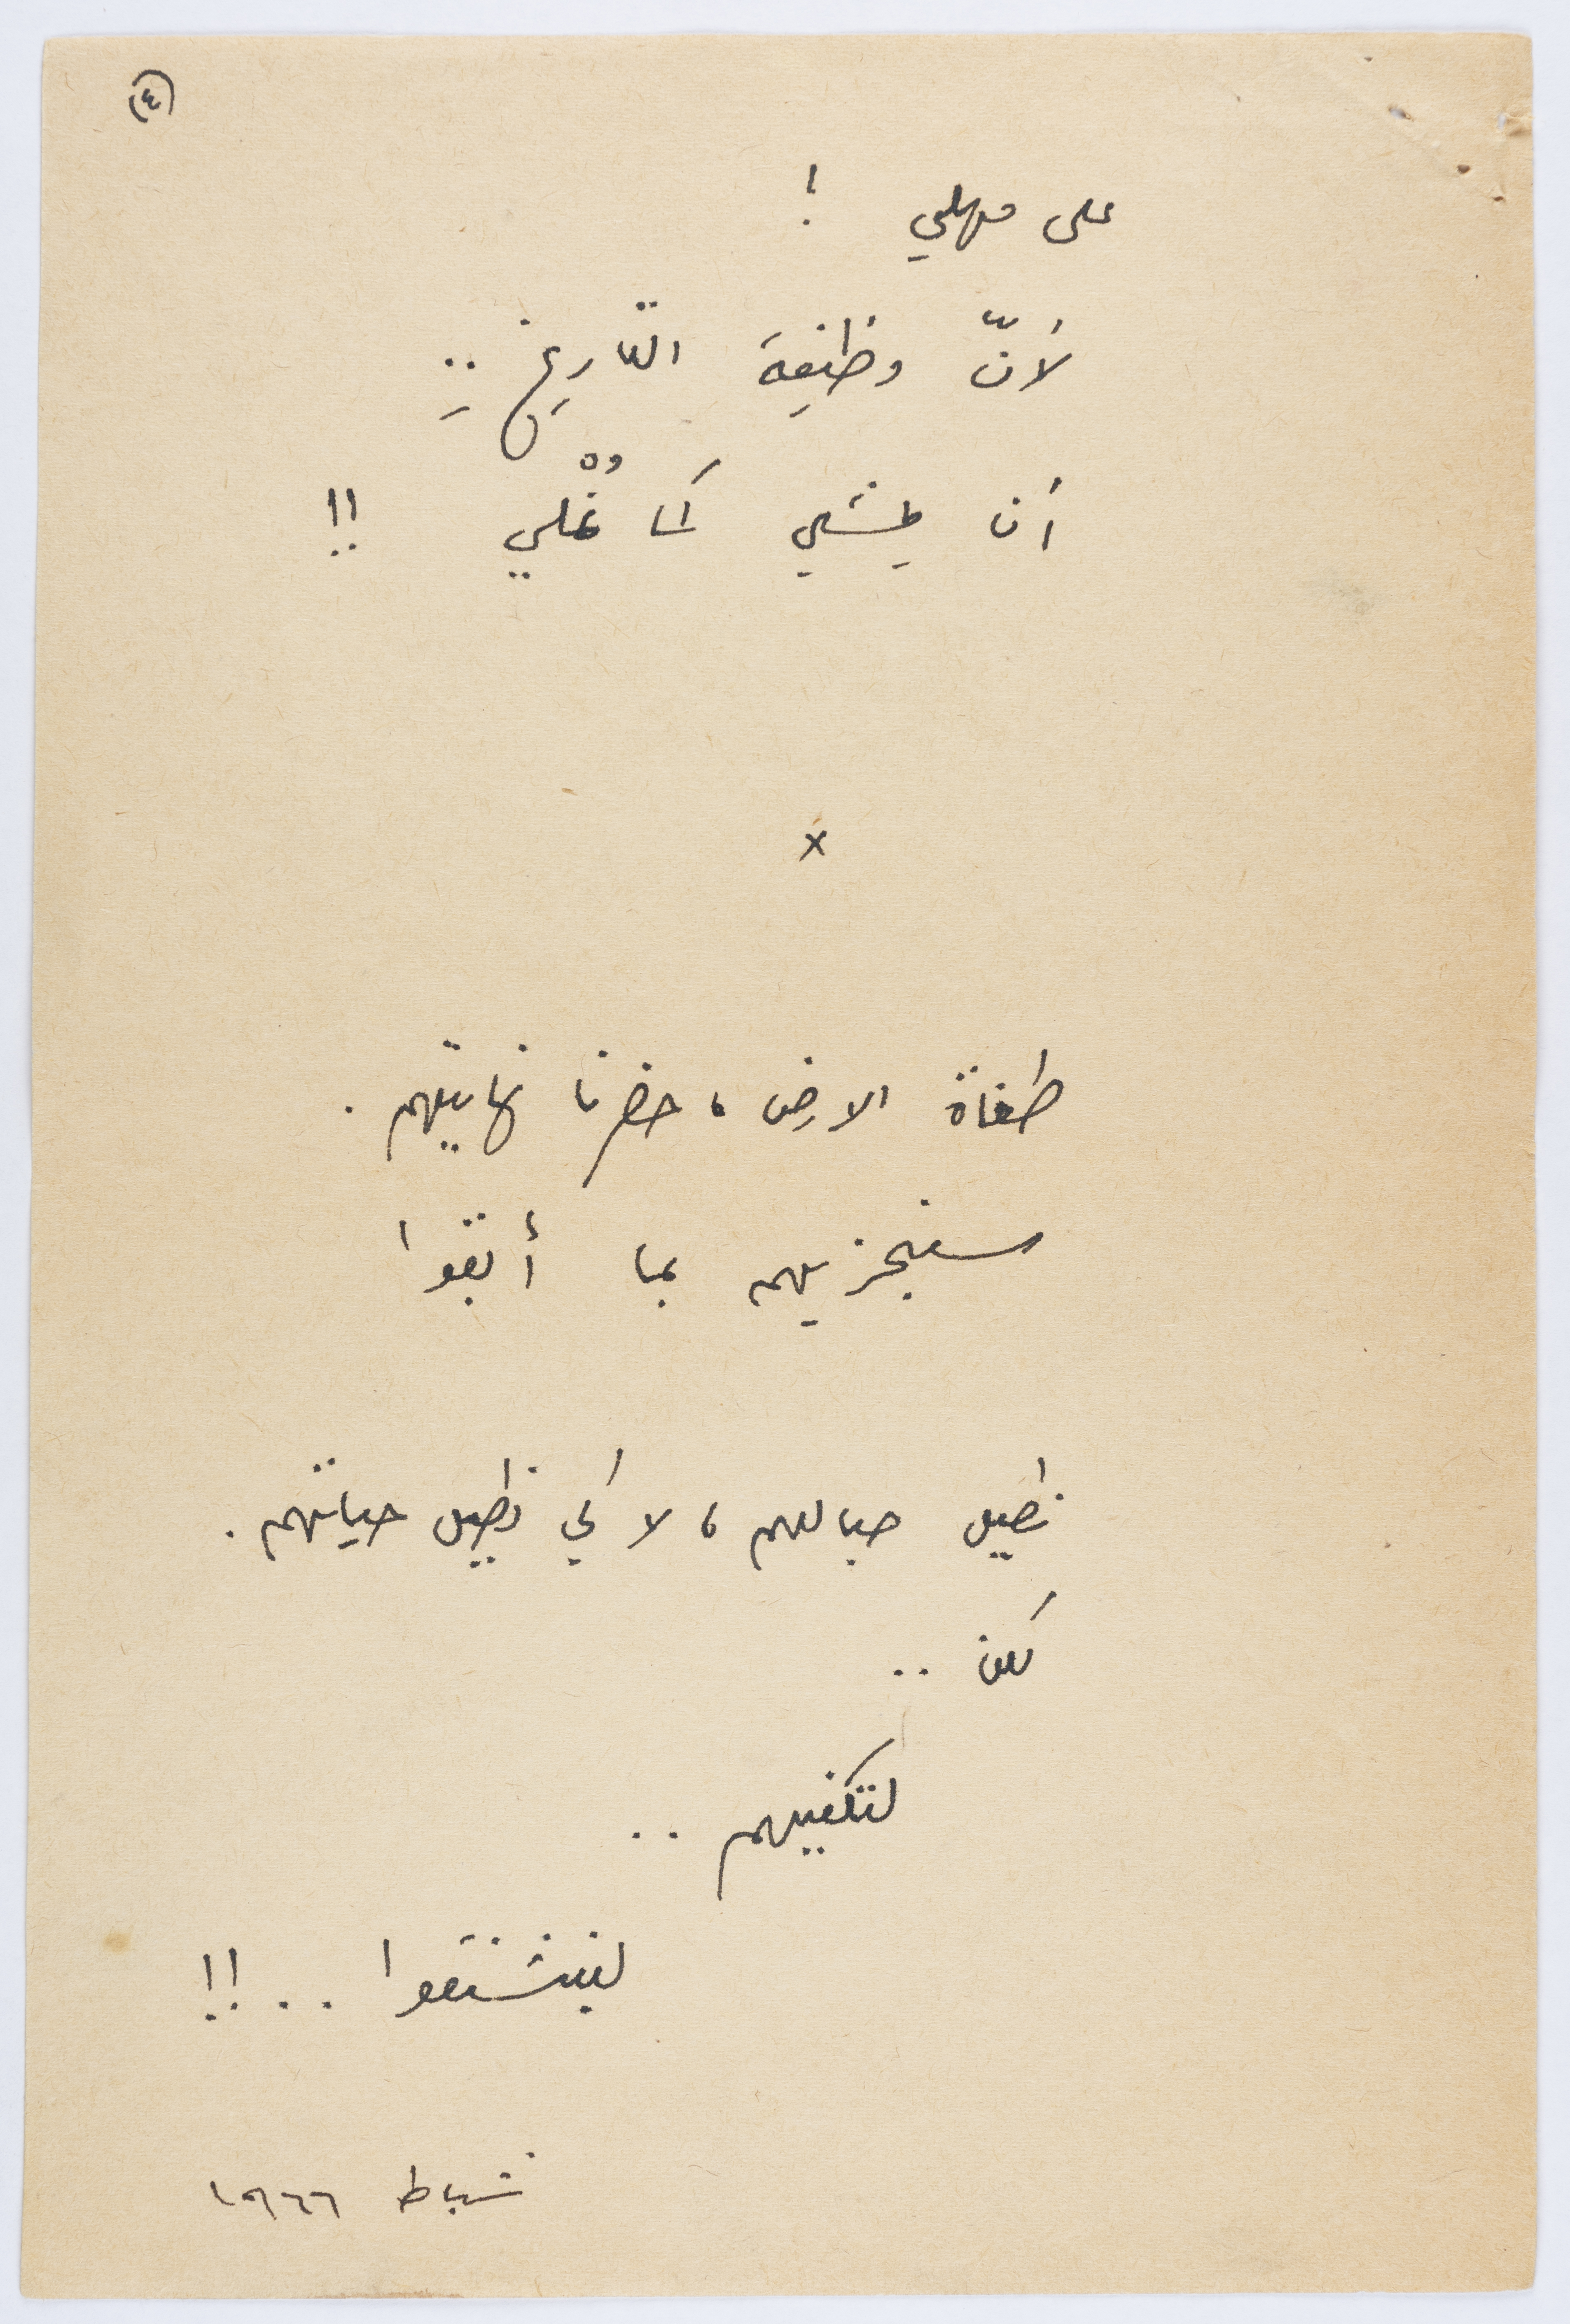 (٤)
على مهلي !
لأنّ وظيفةَ التاريخِ ..
أن يمشي كما نُمْلي !!
x
طغاة الارض ، حضرنا نهايتهم .
سنجزيهم بما أبقوا
نطيل حبالهم ، لا كي نطيل حياتهم .
لكن ..
لتكفيهم ..
لينشنقوا .. !!
شباط ١٩٦٦